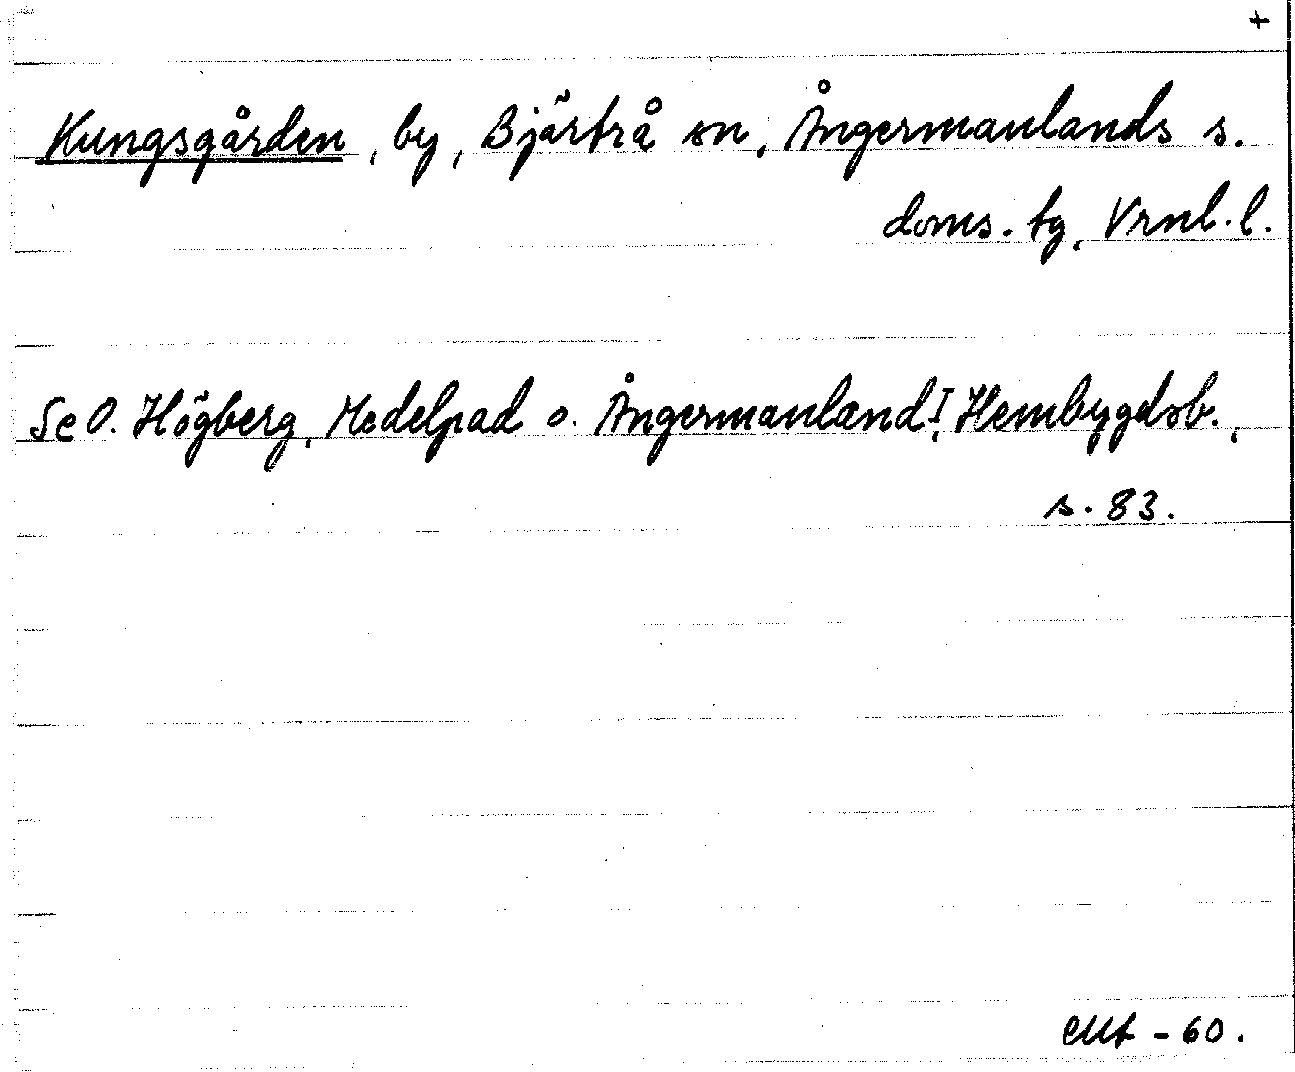 +
Kungsgården, by, Bjärtrå sn, Ångermanlands s.
doms. tg, Vrnl. l.
Se O. Högberg, Medelpad o. Ångermanland I, Hembygdsb.,
s. 83.
- 60.